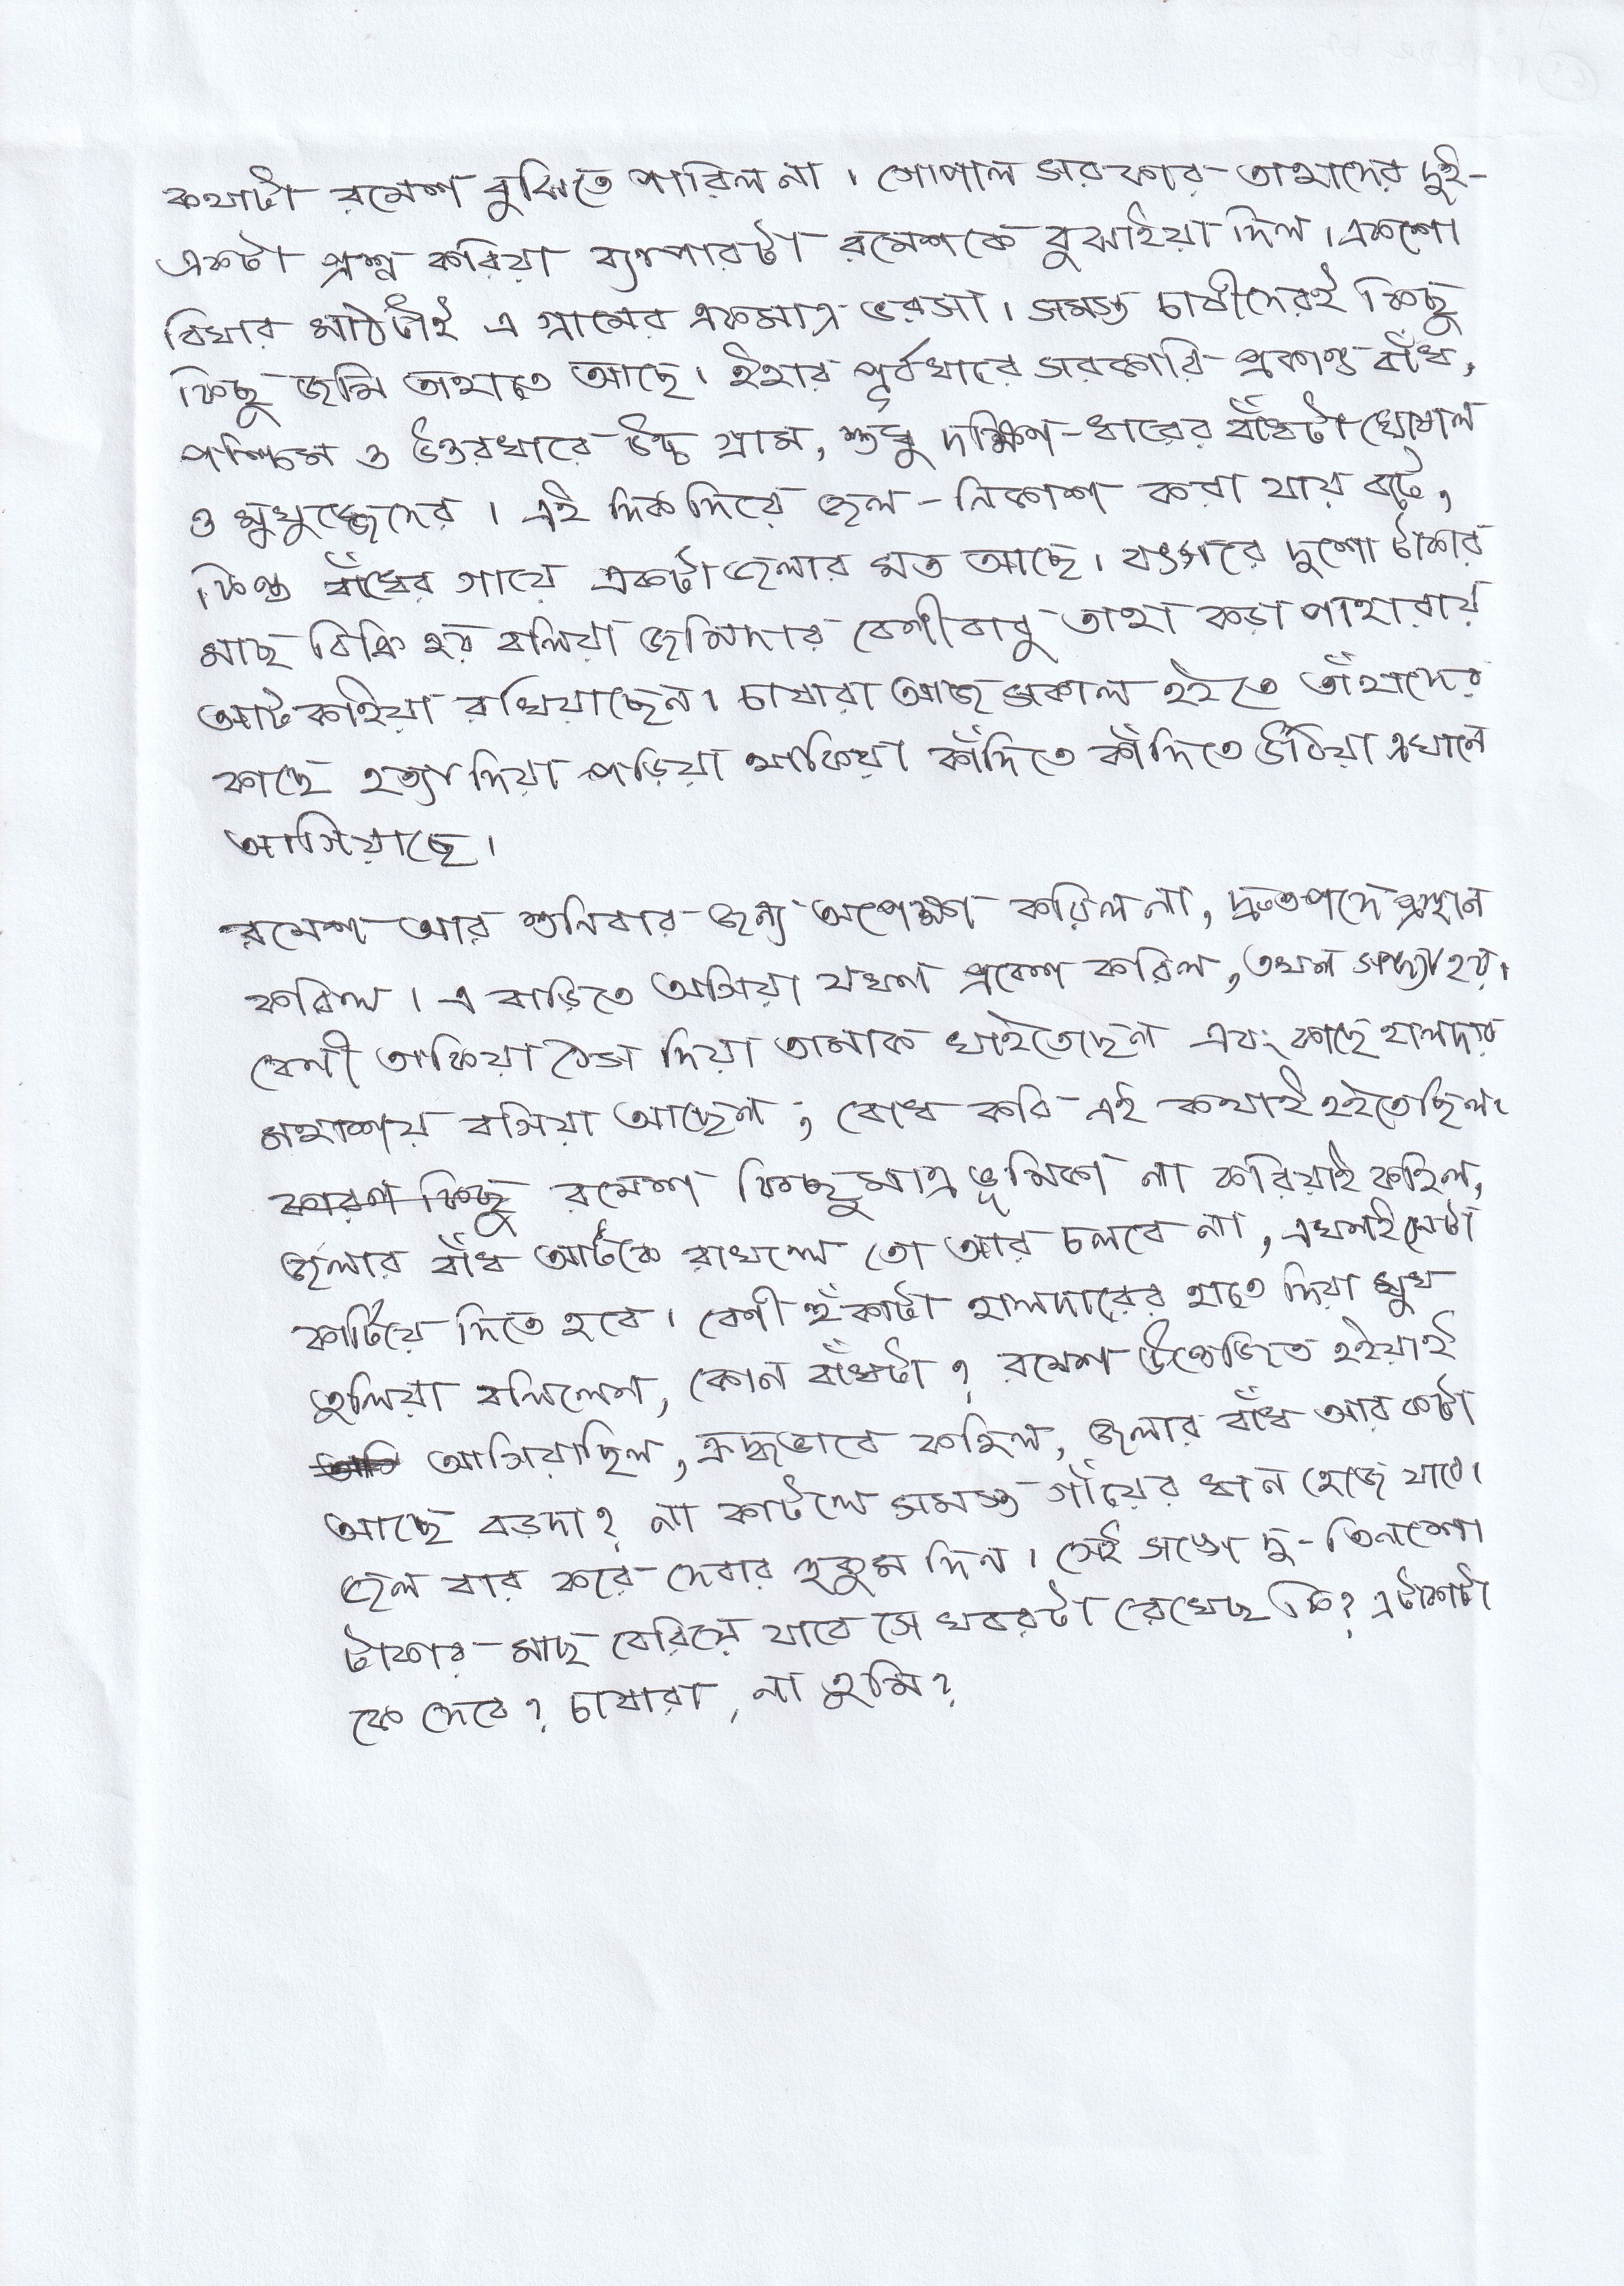 কথাটা রমেশ বুঝিতে পারিল না। গোপাল সরকার তাহাদের দুই-
একটা প্রশ্ন করিয়া ব্যাপারটা রমেশকে বুঝাইয়া দিল। একশো
বিঘার মাঠটাই এ গ্রামের একমাত্র ভরসা। সমস্ত চাষীদেরই কিছু
কিছু জমি তাহাতে আছে। ইহার পূর্বধারে সরকারি প্রকাণ্ড বাঁধ,
পশ্চিম ও উত্তরধারে উচ্চ গ্রাম, শুধু দক্ষিণ-ধারের বাঁধটা ঘোষাল
ও মুখুজ্জেদের। এই দিক দিয়ে জল-নিকাশ করা যায় বটে,
কিন্তু বাঁধের গায়ে একটা জলার মত আছে। বৎসরে দুশো টাকার
মাছ বিক্রি হয় বলিয়া জমিদার বেণীবাবু তাহা কড়া পাহারায়
আটকাইয়া রাখিয়াছেন। চাষারা আজ সকাল হইতে তাঁহাদের
কাছে হত্যা দিয়া পড়িয়া থাকিয়া কাঁদিতে কাঁদিতে উঠিয়া এখানে
আসিয়াছে।
রমেশ আর শুনিবার জন্য অপেক্ষা করিল না, দ্রুতপদে প্রস্থান
করিল। এ বাড়িতে আসিয়া যখন প্রবেশ করিল, তখন সন্ধ্যা হয়।
বেণী তাকিয়া ঠেস দিয়া তামাক খাইতেছেন এবং কাছে হালদার
মহাশয় বসিয়া আছেন; বোধ করি এই কথাই হইতেছিল।
কারণ কিছু রমেশ কিছুমাত্র ভূমিকা না করিয়াই কহিল,
জলার বাঁধ আটকে রাখলে তো আর চলবে না, এখনই সেটা
কাটিয়ে দিতে হবে। বেণী হুঁকাটা হালদারের হাতে দিয়া মুখ
তুলিয়া বলিলেন, কোন বাঁধটা? রমেশ উত্তেজিত হইয়াই
আসিয়াছিল, ক্রুদ্ধভাবে কহিল, জলার বাঁধ আর কটা
আছে বড়দা? না কাটলে সমস্ত গাঁয়ের ধান হেজে যাবে।
জল বার করে দেবার হুকুম দিন। সেই সঙ্গে দু-তিনশো
টাকার মাছ বেরিয়ে যাবে সে খবরটা রেখেছ কি? এ টাকাটা
কে দেবে? চাষারা, না তুমি?